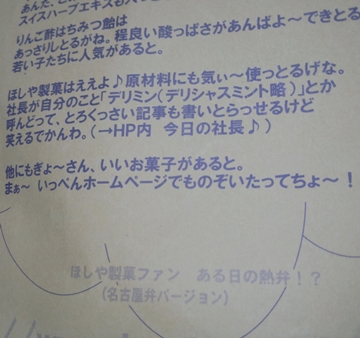 あんた、こ
スイスハーブエキスも入っ
りんご酢はちみつ飴は
あっさりしとるがね。程良い酸っぱさがあんばよ～できとる
若い子たちに人気があると。
ほしや製菓はええよ♪原材料にも気ぃ～使っとるげな。
社長が自分のこと「デリミン(デリシャスミント略)」とか
呼んどって、とろくっさい記事も書いとらっせるけど
笑えるでかんわ。(→HP内 今日の社長♪)
他にもぎょ～さん、いいお菓子があると。
まぁ～ いっぺんホームページでものぞいたってちょ～!
ほしや製菓ファン ある日の熱弁!?
(名古屋弁バージョン)